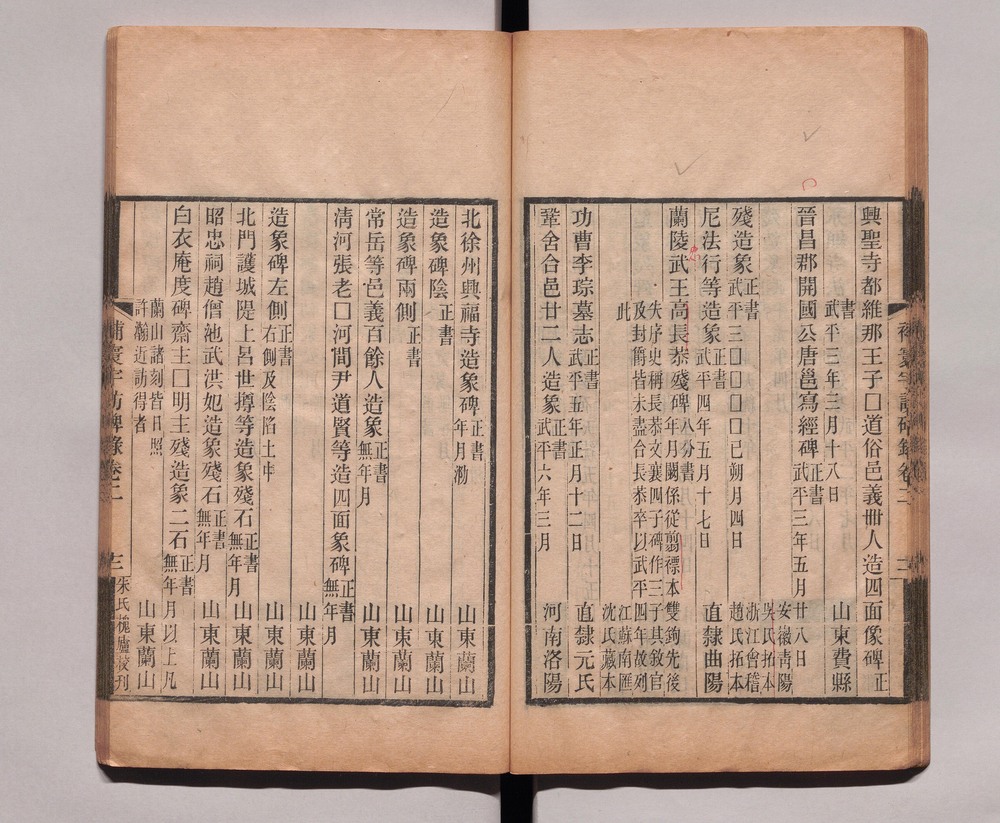 興聖寺都維那王子□道俗邑義卌人造四面像碑正
書
武平三年三月十八日 山東費縣
晉昌郡開國公唐邕寫經碑正書
武平三年五月廿八日
殘造象正書
武平三□□□□己朔月四日
安徽青陽吳氏拓本
浙江會稽趙氏拓本
尼法行等造象正書
武平四年五月十七日 直隸曲陽
蘭陵武王高長恭殘碑八分書
年月闕係從翦褾本雙鉤先後
失序史稱長恭文襄四子碑作三子其敘官
及封爵皆未盡台長恭卒以武平四年故列
此 江蘇南匯沈氏藏本
功曹李琮墓志正書
武平五年正月十二日 直隸元氏
鞏舍合邑廿二人造象正書
武平六年三月 河南洛陽
補寰宇訪碑錄卷二 二
北徐州興福寺造象碑正書
年月泐 山東蘭山
造象碑陰正書 山東蘭山
造象碑兩側正書 山東蘭山
常岳等邑義百餘人造象正書
無年月 山東蘭山
淸河張老□河間尹道賢等造四面象碑正書
無年月
山東蘭山
造象碑左側正書
右側及陰陷土中 山東蘭山
北門護城隄上呂世㨗等造象殘石正書
無年月 山東蘭山
昭忠祠趙僧池武洪妃造象殘石正書
無年月 山東蘭山
白衣庵度碑齋主□明主殘造象二石正書
無年月以上凡 山東蘭山
蘭山諸刻皆日照
許瀚近訪得者
補寰宇訪碑錄卷二 三 朱氏槐廬校刊